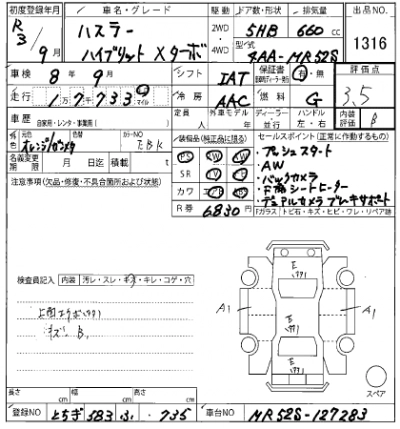 初度登録年月 車名・グレード 駆動 ドア数・形状 排気量 出品NO
R3年9月 ハスラー ハイブリット Xターボ 2WD・4WD 5HB 660cc 1316
型式 4AA-MR52S
車検 8年9月 シフト IAT 保証書 有・無 評価点
走行 1万7733 マイル 冷房 AAC 燃料 G 3.5
車歴 自家用・レンタ・事業用 定員 人 外車モデル 年 ディーラー 並行 ハンドル 左・右 内装評価 B
色 元色 カラーNO 装備品(純正品に限る) セールスポイント(正常に動作するもの)
名義変更期限 月 日迄 積載 t PS
注意事項(欠品・修復・不具合箇所および状態) SR
カワ
・プッシュスタート
・AW
・バックカメラ
・F席シートヒーター
・デュアルカメラブレーキサポート
R券 6830円 Fガラス トビ石・キズ・ヒビ・ワレ・リペア跡
検査員記入 内装 汚レ・スレ・キズ・キレ・コゲ・穴
キズ B
A1 E A1
E
スペア
長さ cm 幅 cm 高さ cm
登録NO とちぎ 583 ふ ・735 車台NO MR52S-127283